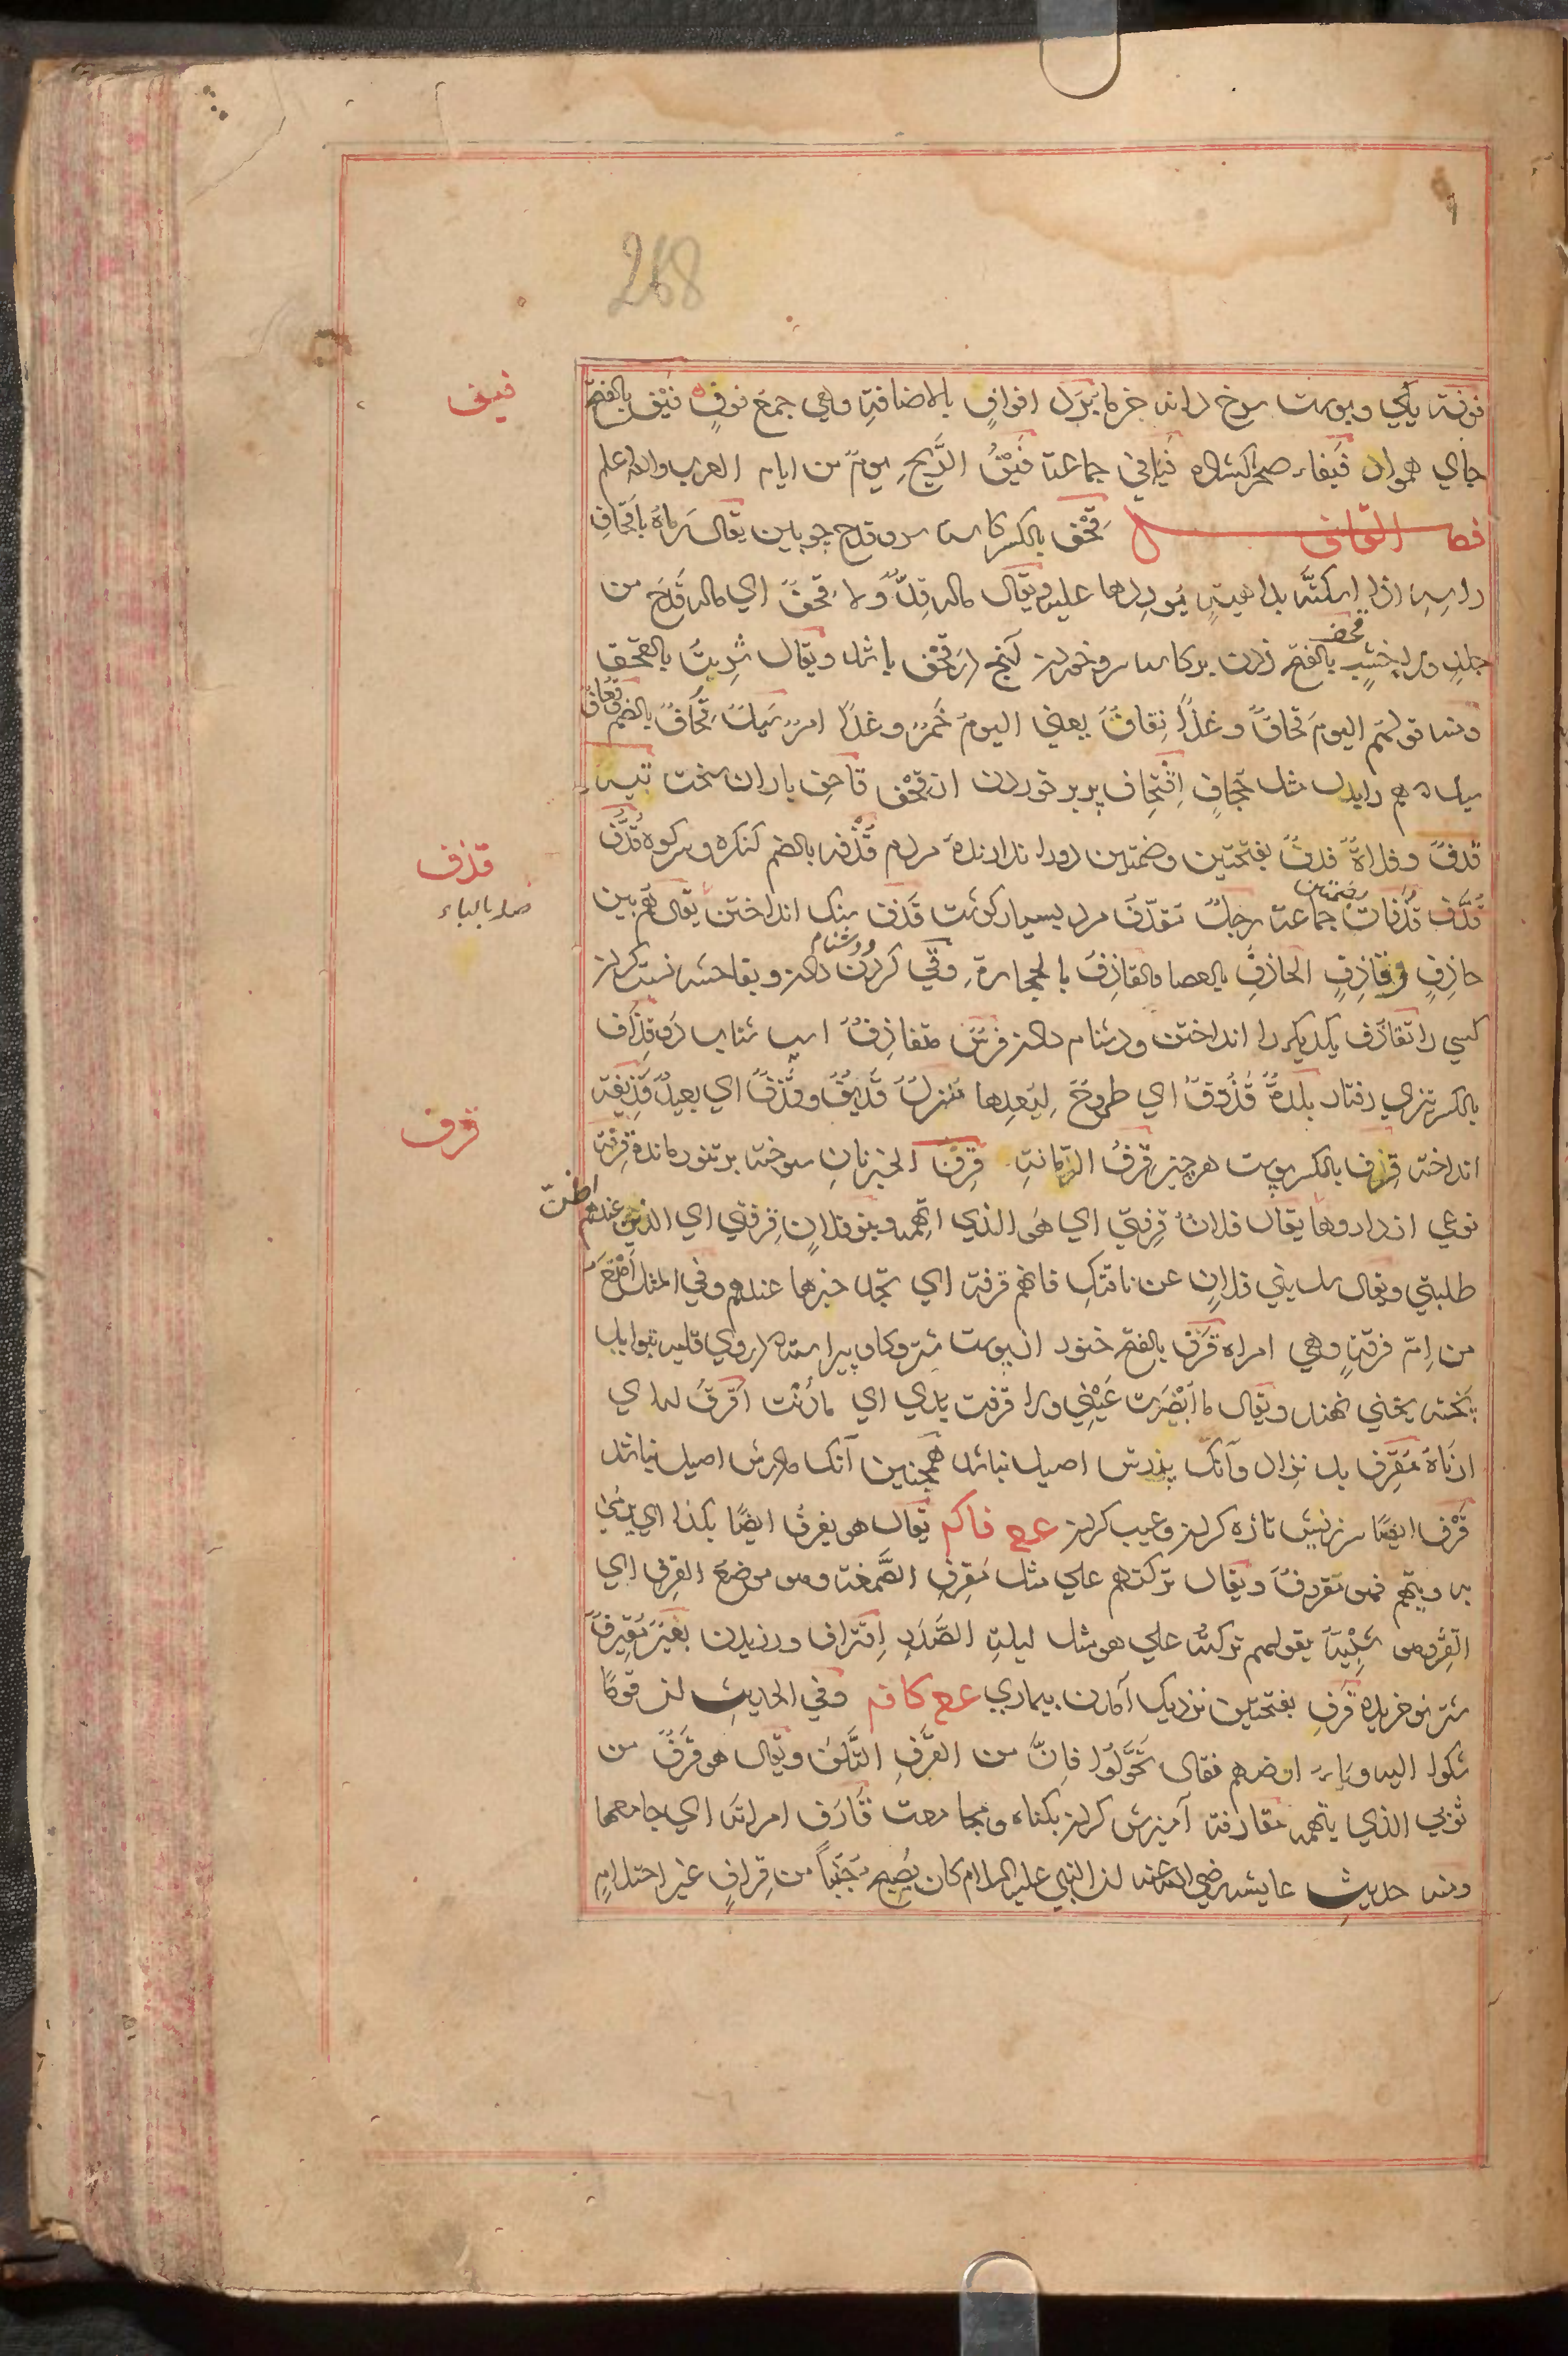 268
فوفة يكي وپوست سرخ دانه خرما بُرْدُ افوافٍ بالاضافةِ وهي جمع فوفٍ فَيْف بالفتح
فيف
جاي هموار فَيفاء صحرا كشاده فَيافي جماعة فَيْفُ الرِّيحِ يومٌ من ايام العرب والله اعلم
فصل القاف قِحْف بالكسر كاسه سر وقدح چوبين يقال رماهُ باَقحافِ
راسِهِ اذا اسكتَهُ بداهيةٍ يُورِدها عليه ويقال ماله قِدٌّ ولا قِحْفٌ اي ماله قَدَحٌ من
جلدٍ ولا خشبٍ قحف بالفتح زدن بر كاسه سر وخوردن آنچه در قحف باشد ويقال شربتُ بالقحف
ومنه قولهم اليومَ قِحافٌ وغدًا نِقافٌ يعني اليومَ خَمرٌ وغدًا امرٌ سَيلٌ قُحافٌ بالضم
قُعاف
سيل همه راينده مثل جُحافٍ اِقْتِحاف بربر خوردن از قِحْف قاحِف باران سخت نِيّه
قَذَفٌ وفلاةٌ قذفٌ بفتحتين وضمتين دور اندازنده مردم قُذْفه بالضم كنكره وسركوه قُذَف
قذف
صله بالباء
قُذُف قُذُفات بضمتين جماعة رجلٌ مُقذَّفٌ مرد بسيار كوشت قَذف سنك انداختن يقال هُم بين
حاذِفٍ وقاذِفٍ الحاذِفُ بالعصا والقاذِفُ بالحجارة وقي كردن ودشنام دادن وبفاحشه نسبت كردن
كسي را تقاذُف يكديكر را انداختن ودشنام دادن فرسٌ متقاذِفٌ اسپ شتاب رو قِذاف
بالكسر تيزي رفتار بلدةٌ قَذُوفٌ اي طَروحٌ لِبُعدِها منزلٌ قَذَفٌ وقَذِيفٌ اي بعيدٌ قَذِيفة
انداخته قِرف بالكسر پوست هر چيز قِرفُ الرمانةِ قِرْف الخبز نان سوخته بر تنور مانده قِرْفة
قرف
نوعي از داروها يقال فلانٌ قِرفتي اي هو الذي اتَّهِمُه وبنو فلانٍ قِرفتي اي الذين عندهم اظنّ
طلبتي ويقال سل بني فلانٍ عن ناقتكِ فانهم قرفة اي تجد خبرها عندهم وفي المثل اَمْنَعُ
من اِم قرفةٍ وهي امراة قَرْف بالفتح خنور از پوست شتر وكاو پيراسته در وي قليه بتوابل
پخته يخني نهند ويقال ما اَبْصَرَت عَيْني ولا اقرفت يدي اي ما دَنَت اَقرفَ له اي
ادناهُ مُقرِف بد نژاد وآنك پدرش اصيل نباشد همچنين آنك مادرش اصيل نباشد
قَرْف ايضًا سرزنش تازه كردن وعيب كردن عع فاكم يقال هو يقرفُ ايضًا بكذا اي يرمي
به ويتهم فهو مقروفٌ ويقال تركتهم علي مثل مَقرِفِ الصَّمغة وهو موضع القرف اي
القِشر وهو شبيه بقولهم تركته علي هو مثل ليلةِ الصَّدَرِ اِقتراف ورزيدن بعيرٌ مُقتَرَفٌ
شتر نو خريده قَرَف بفتحتين نزديك آمدن بيماري عع كافه وفي الحديثِ ان قومًا
شكوا اليه وباءَ ارضهم فقال تَحَوَّلُوا فانَّ من القَرَفِ التَّلَفَ ويقال هو قَرَفٌ من
ثوبي الذي يتهمه مقارفة آميزش كردن بكناه ومجامعت قَارَف امراته اي جامعها
ومنه حديث عايشه رضي الله عنه ان النبي عليه السلام كان يُصبح جُنُباً من قِرافٍ غير احتلامٍ